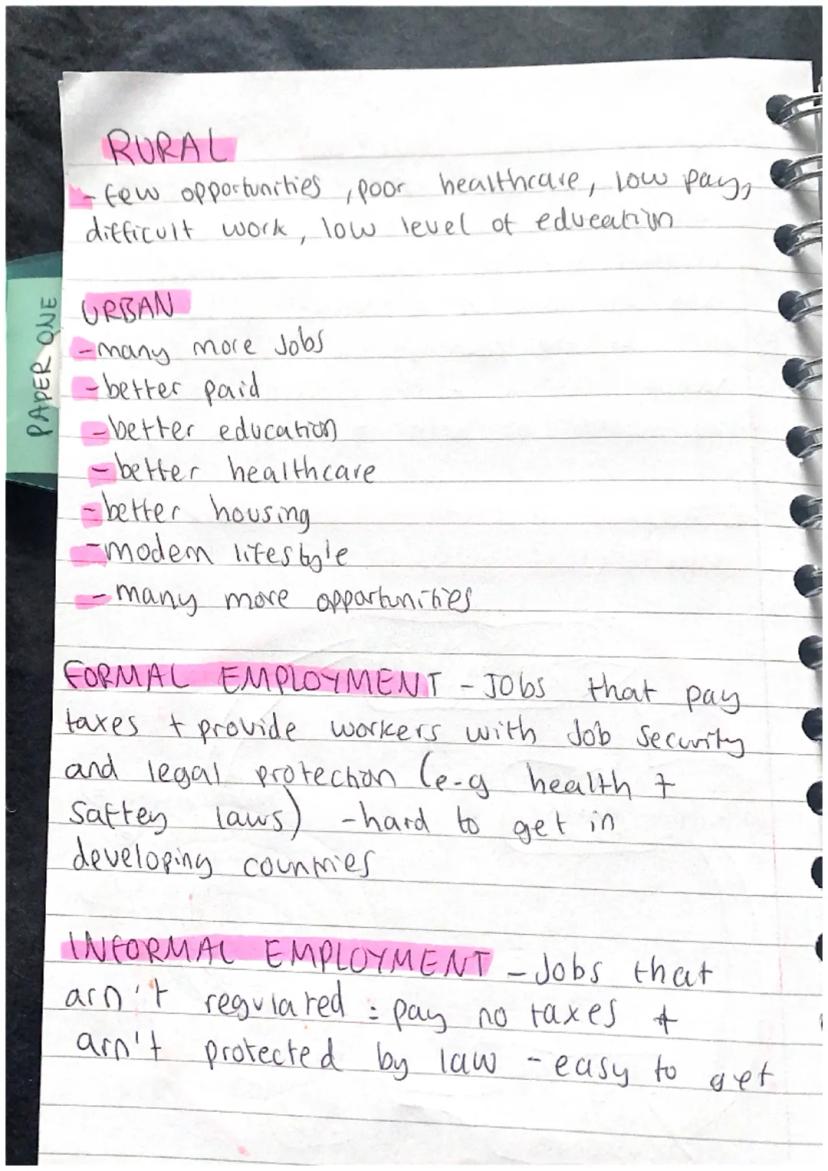 RURAL
- few opportunities , poor healthcare, low pay,
difficult work, low level of education
PAPER ONE
URBAN
- many more Jobs
- better paid
- better education
- better healthcare
- better housing
- modern lifestyle
- many more opportunities
FORMAL EMPLOYMENT - Jobs that pay
taxes + provide workers with Job security
and legal protection (e-g health +
saftey laws) - hard to get in
developing countries
INFORMAL EMPLOYMENT - Jobs that
arn't regulared : pay no taxes +
arn't protected by law - easy to get